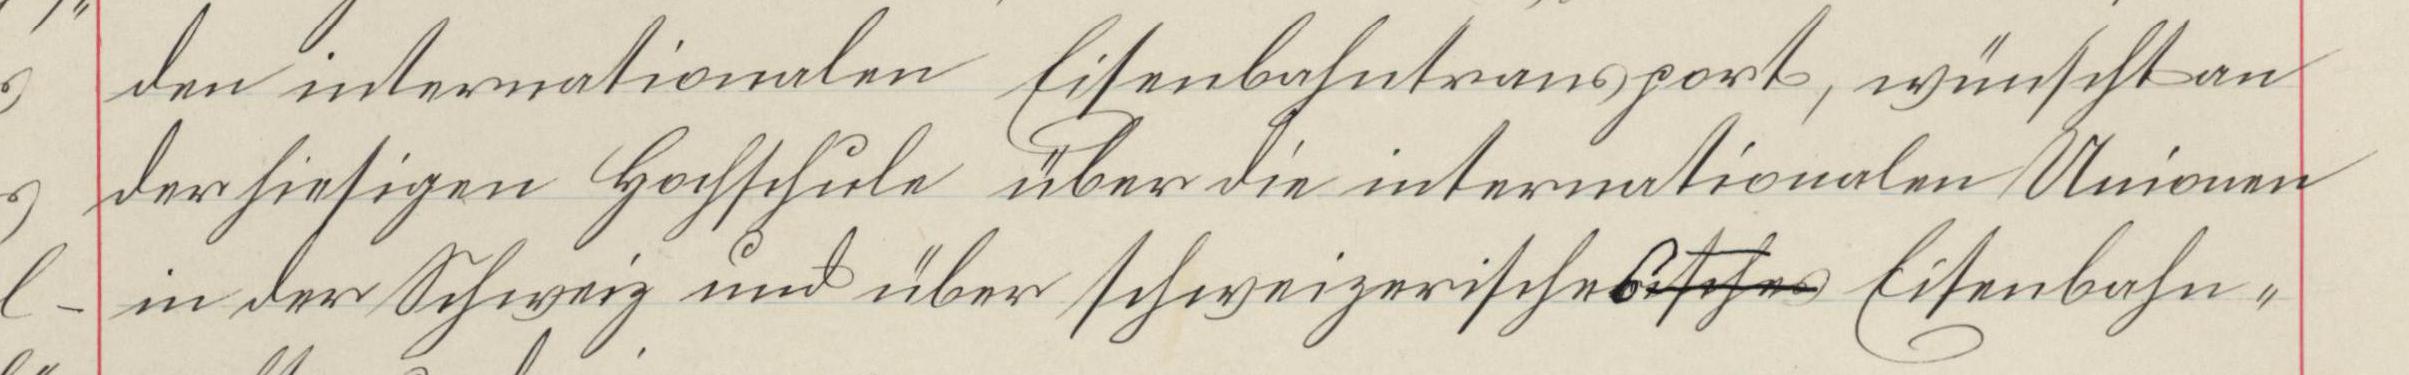 den internationalen Eisenbahntransport, wünscht an
der hiesigen Hochschule über die internationalen Unionen
in der Schweiz und über schweizerisches Eisenbahn-